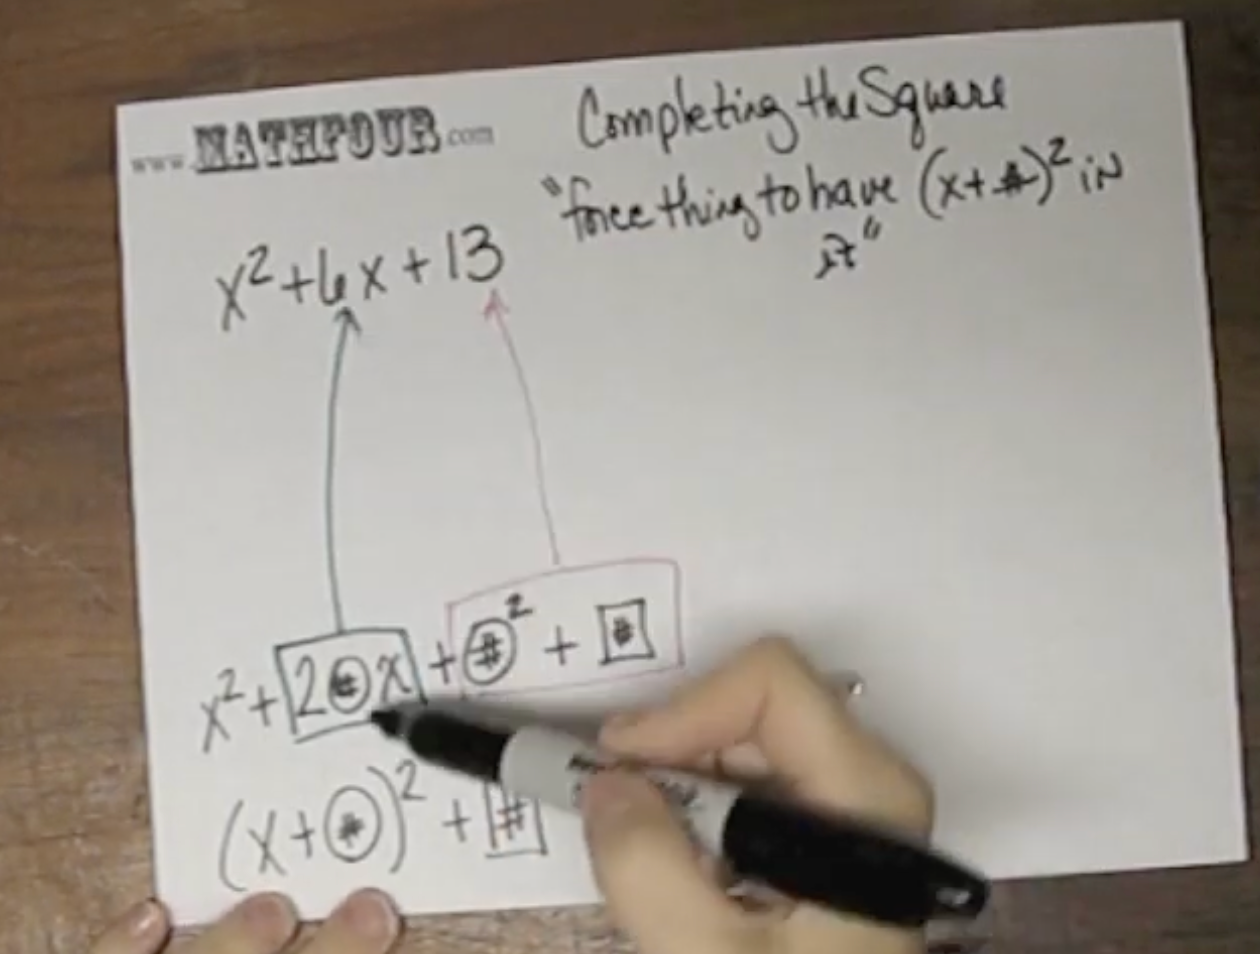 www.MATHFOUR.com
Completing the Square
"force thing to have (x+#)² in
it"
x²+6x+13
x²+2#x+#²+#
(x+#)²+#